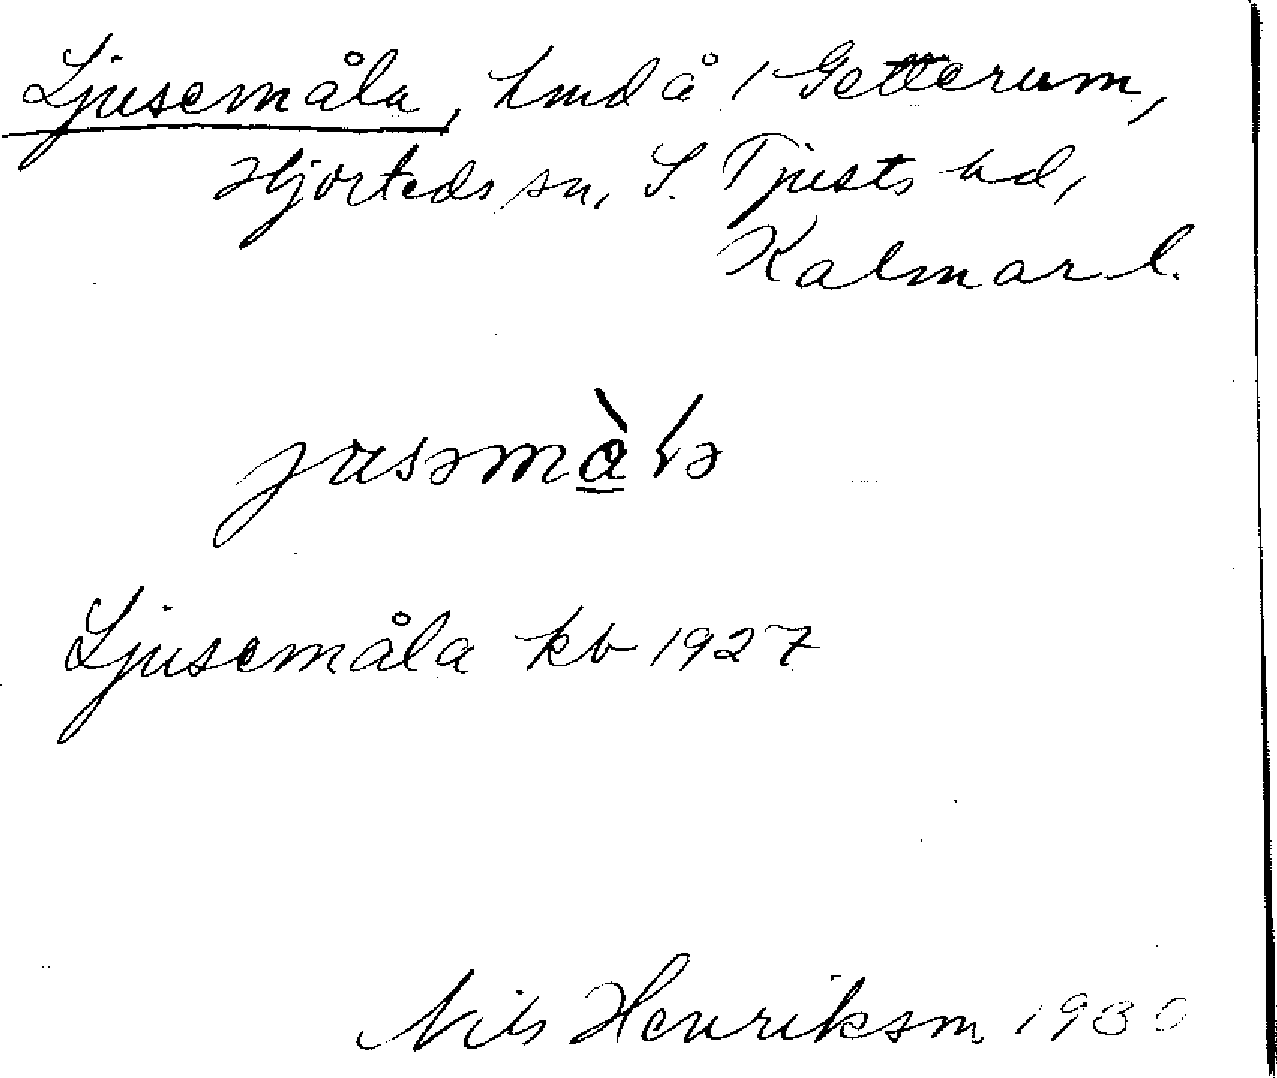 Ljusemåla, hmd å 1 Getterum,
Hjorteds sn, S. Tjusts hd,
Kalmar l.
jusəmàlə
Ljusemåla kb 1927
Nils Henriksm 1930